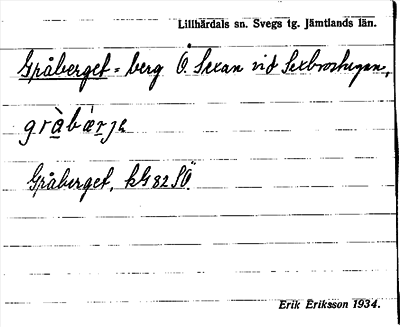 Lillhärdals sn. Svegs tg. Jämtlands län.
Gråberget = berg Ö. Sexan vid Sexbrostugan,
gràbærje
Gråberget, kbl 82 SÖ.
Erik Eriksson 1934.